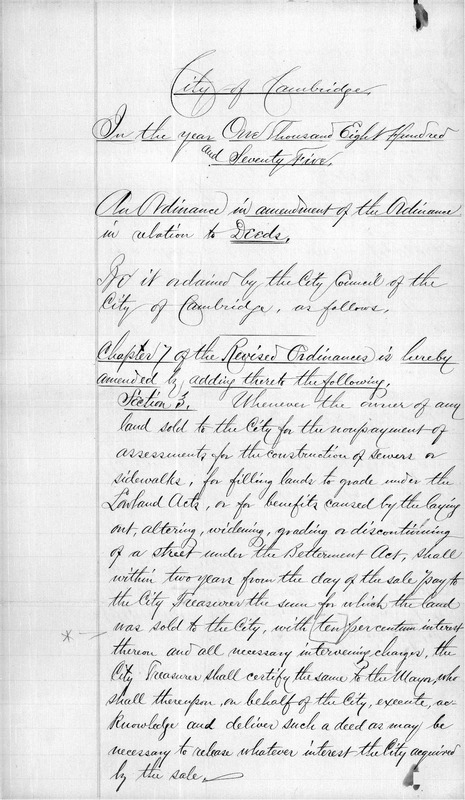 City of Cambridge
In the year One Thousand Eight Hundred
and Seventy Five.
An Ordinance in amendment of the Ordinance
in relation to Deeds.
Be it ordained by the City Council of the
City of Cambridge, as follows.
Chapter 7 of the Revised Ordinances is hereby
amended by adding thereto the following.
Section 3. Whenever the owner of any
land sold to the City for the nonpayment of
assessments for the construction of sewers or
sidewalks, for filling lands to grade under the
Lowland Acts, or for benefits caused by the laying
out, altering, widening, grading or discontinuing
of a street under the Betterment Act, shall
within two years from the day of the sale pay to
the City Treasurer the sum for which the land
* - - was sold to the City, with [ten] per centum interest
thereon and all necessary intervening charges, the
City Treasurer shall certify the same to the Mayor, who
shall thereupon, on behalf of the City, execute, ac-
knowledge and deliver such a deed as may be
necessary to release whatever interest the City acquired
by the sale.